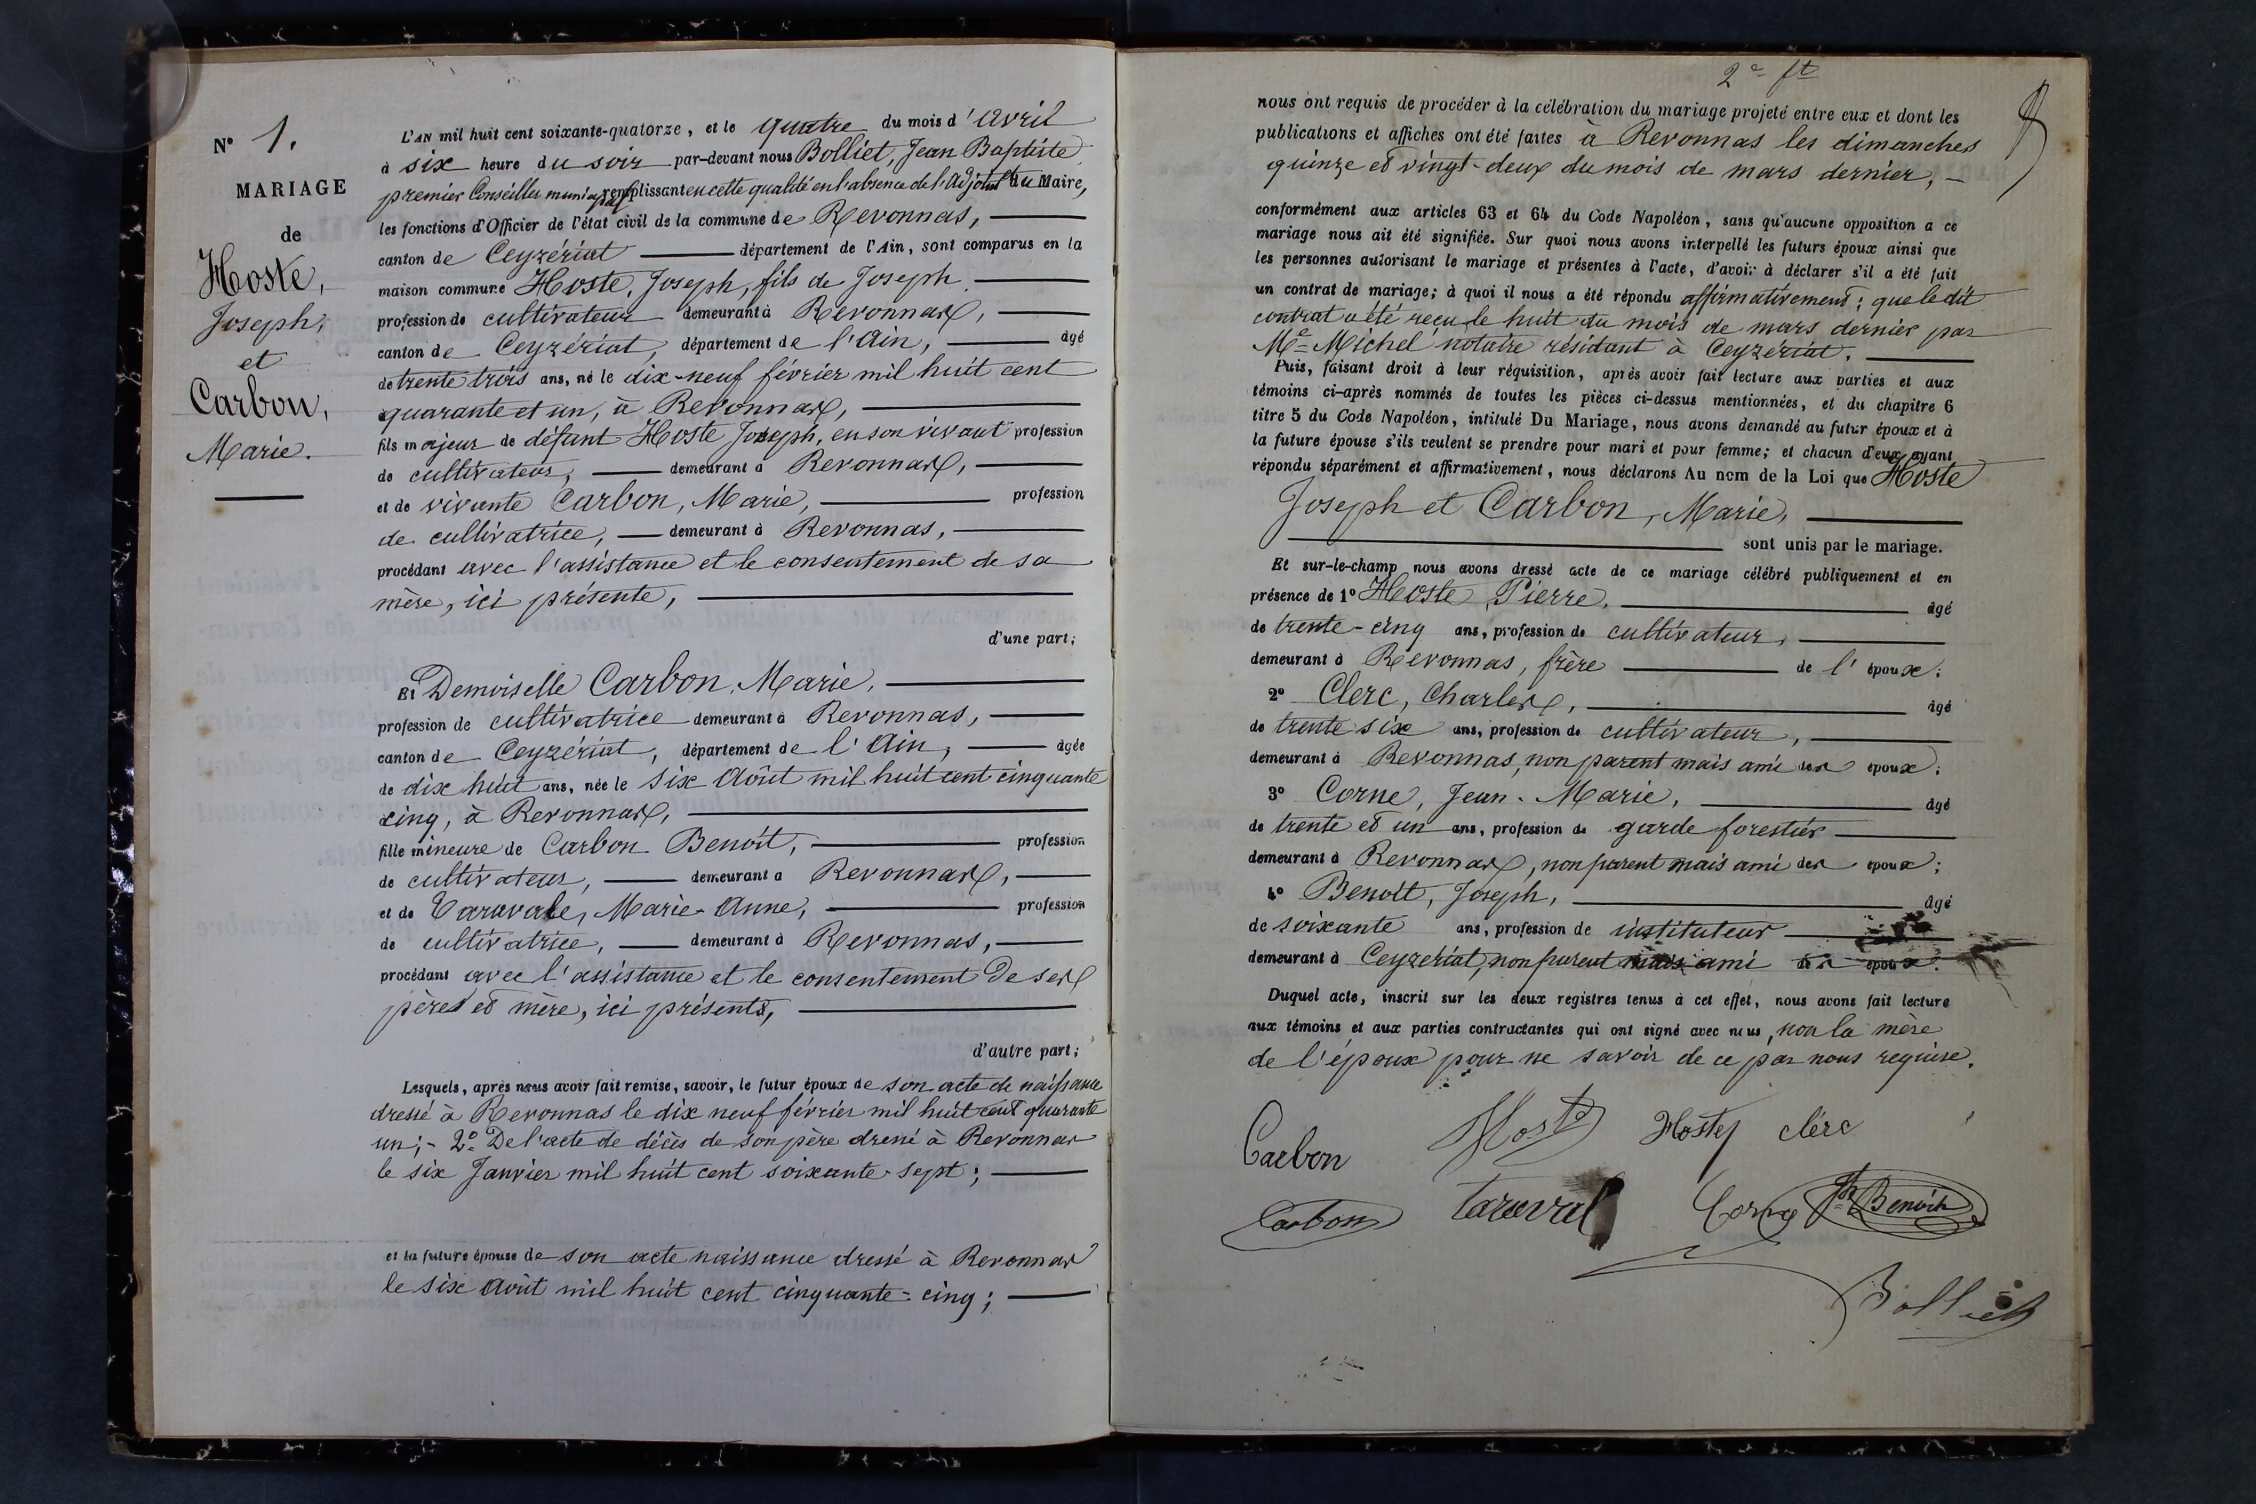 N° 1.
MARIAGE
de
Hoste,
Joseph,
et
Carbon,
Marie.
L'AN mil huit cent soixante-quatorze, et le quatre du mois d'avril
à six heure du soir par-devant nous Bolliet, Jean Baptiste
premier Conseiller municipal remplissant en cette qualité en l'absence de l'Adjoint du Maire,
les fonctions d'Officier de l'état civil de la commune de Revonnas,
canton de Ceyzériat département de l'Ain, sont comparus en la
maison commune Hoste, Joseph, fils de Joseph.
profession de cultivateur demeurant à Revonnas,
canton de Ceyzériat, département de l'Ain, agé
de trente trois ans, né le dix-neuf février mil huit cent
quarante et un, à Revonnas,
fils majeur de défunt Hoste Joseph, en son vivant profession
de cultivateur, demeurant à Revonnas,
et de vivante Carbon, Marie, profession
de cultivatrice, demeurant à Revonnas,
procédant avec l'assistance et le consentement de sa
mère, ici présente,
d'une part;
Et Demoiselle Carbon, Marie,
profession de cultivatrice demeurant à Revonnas,
canton de Ceyzériat, département de l'Ain, agée
de dix huit ans, née le six Août mil huit cent cinquante
cinq, à Revonnas,
fille mineure de Carbon Benoît, profession
de cultivateur, demeurant à Revonnas,
et de Taravale, Marie-Anne, profession
de cultivatrice, demeurant à Revonnas,
procédant avec l'assistance et le consentement de ses
pères et mère, ici présents,
d'autre part;
Lesquels, après nous avoir fait remise, savoir, le futur époux de son acte de naissance
dressé à Revonnas le dix neuf février mil huit cent quarante
un; - 2° De l'acte de décès de son père dressé à Revonnas
le six Janvier mil huit cent soixante-sept;
et la future épouse de son acte naissance dressé à Revonnas
le six Août mil huit cent cinquante-cinq;
2e ft
nous ont requis de procéder à la célébration du mariage projeté entre eux et dont les
publications et affiches ont été faites à Revonnas les dimanches
quinze et vingt-deux du mois de mars dernier, -
conformément aux articles 63 et 64 du Code Napoléon, sans qu'aucune opposition a ce
mariage nous ait été signifiée. Sur quoi nous avons interpellé les futurs époux ainsi que
les personnes autorisant le mariage et présentes à l'acte, d'avoir à déclarer s'il a été fait
un contrat de mariage; à quoi il nous a été répondu affirmativement; que le dit
contrat a été reçu le huit du mois de mars dernier par
Me Michel notaire résidant à Ceyzériat.
Puis, faisant droit à leur réquisition, après avoir fait lecture aux parties et aux
témoins ci-après nommés de toutes les pièces ci-dessus mentionnées, et du chapitre 6
titre 5 du Code Napoléon, intitulé Du Mariage, nous avons demandé au futur époux et à
la future épouse s'ils veulent se prendre pour mari et pour femme; et chacun d'eux ayant
répondu séparément et affirmativement, nous déclarons Au nom de la Loi que Hoste
Joseph et Carbon, Marie,
sont unis par le mariage.
Et sur-le-champ nous avons dressé acte de ce mariage célébré publiquement et en
présence de 1° Hoste Pierre, âgé
de trente-cinq ans, profession de cultivateur,
demeurant à Revonnas, frère de l'époux;
2° Clerc, Charles, âgé
de trente six ans, profession de cultivateur,
demeurant à Revonnas, non parent mais ami des époux;
3° Corne, Jean-Marie, âgé
de trente et un ans, profession de garde forestier
demeurant à Revonnas, non parent mais ami des époux;
4° Benoît, Joseph, âgé
de soixante ans, profession de instituteur
demeurant à Ceyzériat, non parent mais ami des époux.
Duquel acte, inscrit sur les deux registres tenus à cet effet, nous avons fait lecture
aux témoins et aux parties contractantes qui ont signé avec nous, non la mère
de l'époux pour ne savoir de ce par nous requise.
Carbon Hoste Hoste clérc
Carbon Taraval Corne Jh Benoît
Bolliet